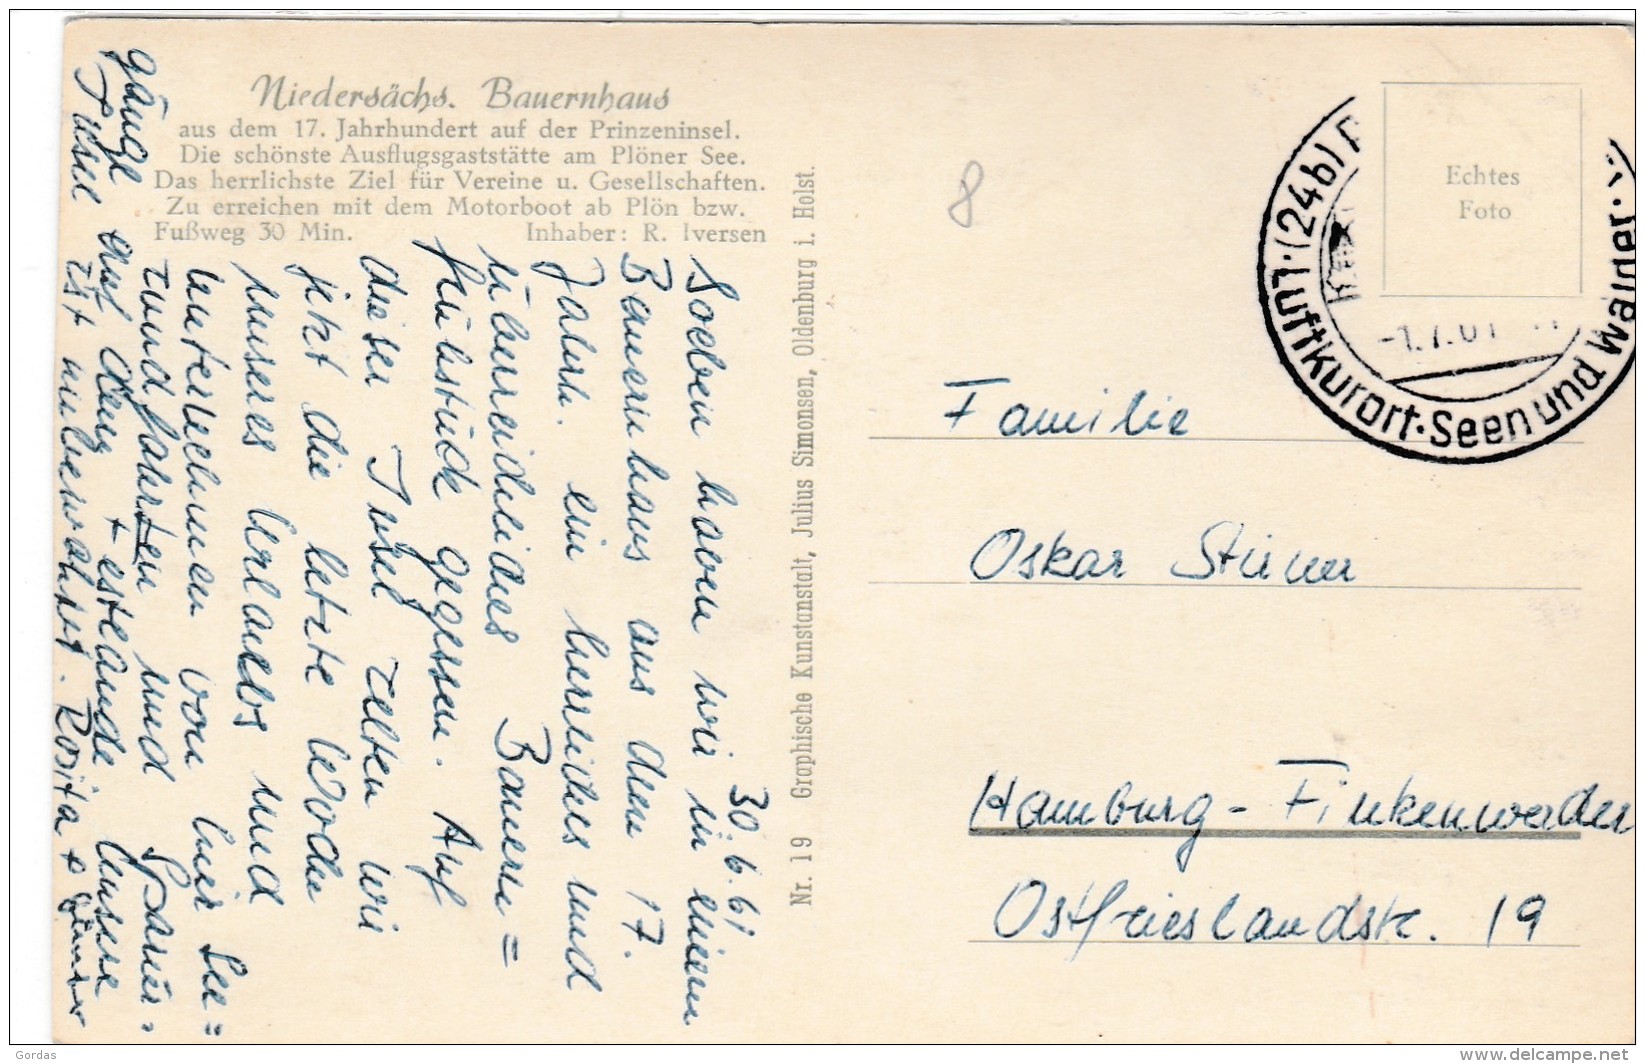 Niedersächs. Bauernhaus
aus dem 17. Jahrhundert auf der Prinzeninsel.
Die schönste Ausflugsgaststätte am Plöner See.
Das herrlichste Ziel für Vereine u. Gesellschaften.
Zu erreichen mit dem Motorboot ab Plön bzw.
Fußweg 30 Min. Inhaber: R. Iversen
30.6.61
Soeben haben wir in einem
Bauernhaus aus dem 17.
Jahrh. ein herrliches und
u. Bauern=
frühstück gegessen. Auf
dieser Insel zelten wir
jetzt die letzte Woche
unseres Urlaubs und
unternehmen von hier See=
rundfahrten und Spazier=
gänge auf dem Festlande. Unsere
Insel ist unbewohnt. Rosita +
Nr. 19 Graphische Kunstanstalt, Julius Simonsen, Oldenburg i. Holst.
8
Echtes
Foto
Luftkurort · Seen und Wälder
(24b) P
-1.7.61
Familie
Oskar
Hamburg - Finkenwerder
Ostfrieslandstr. 19
Gordas
www.delcampe.net